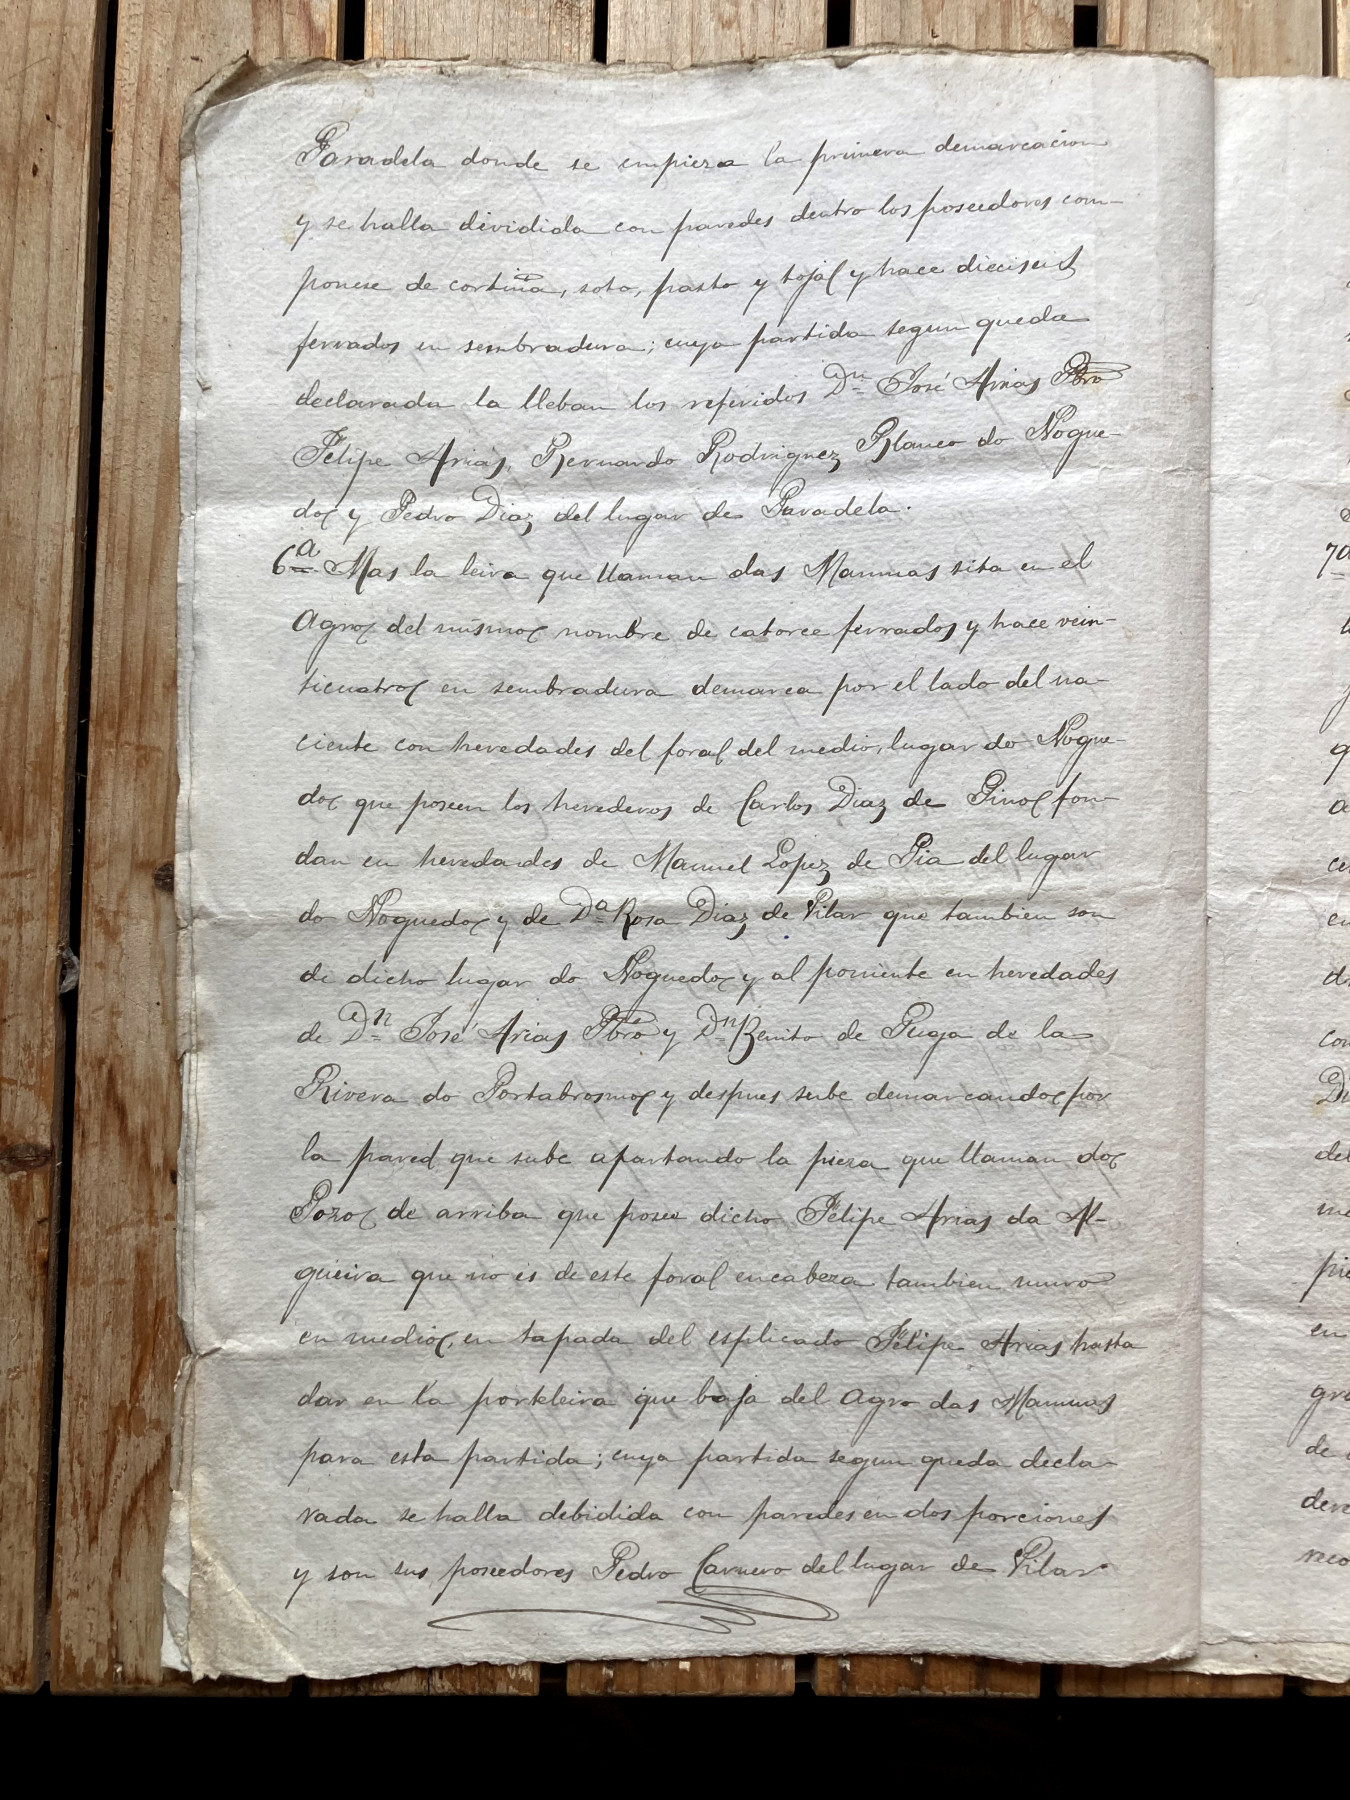 Paradela donde se empieza la primera demarcacion
y se halla dividida con paredes dentro los poseedores com-
ponese de cortiña, soto, pasto y tojal y hace dieciseis
ferrados en sembradura; cuya partida segun queda
declarada la lleban los referidos Dn José Arias Pbro
Felipe Arias, Bernardo Rodriguez Blanco do Nogue-
do y Pedro Diaz del lugar de Paradela.
6a Mas la leira que llaman das Mamuas sita en el
Agro del mismo nombre de catorce ferrados y hace vein-
ticuatro en sembradura demarca por el lado del na-
ciente con heredades del foral del medio, lugar do Nogue-
do que poseen los herederos de Carlos Diaz de Pino fon-
dan en heredades de Manuel Lopez de Pia del lugar
do Noguedo y de Da Rosa Diaz de Vilar que tambien son
de dicho lugar do Noguedo y al poniente en heredades
de Dn José Arias Pbro y Dn Benito de Puga de la
Rivera do Portabrosmo y despues sube demarcando por
la pared que sube apartando la pieza que llaman do
Pozo de arriba que posee dicho Felipe Arias da Al-
gueira que no es de este foral encabeza tambien muro
en medio, en tapada del esplicado Felipe Arias hasta
dar en la porteleira que baja del Agro das Mamuas
para esta partida; cuya partida segun queda decla-
rada se halla debidida con paredes en dos porciones
y son sus poseedores Pedro Carnero del lugar de Vilar